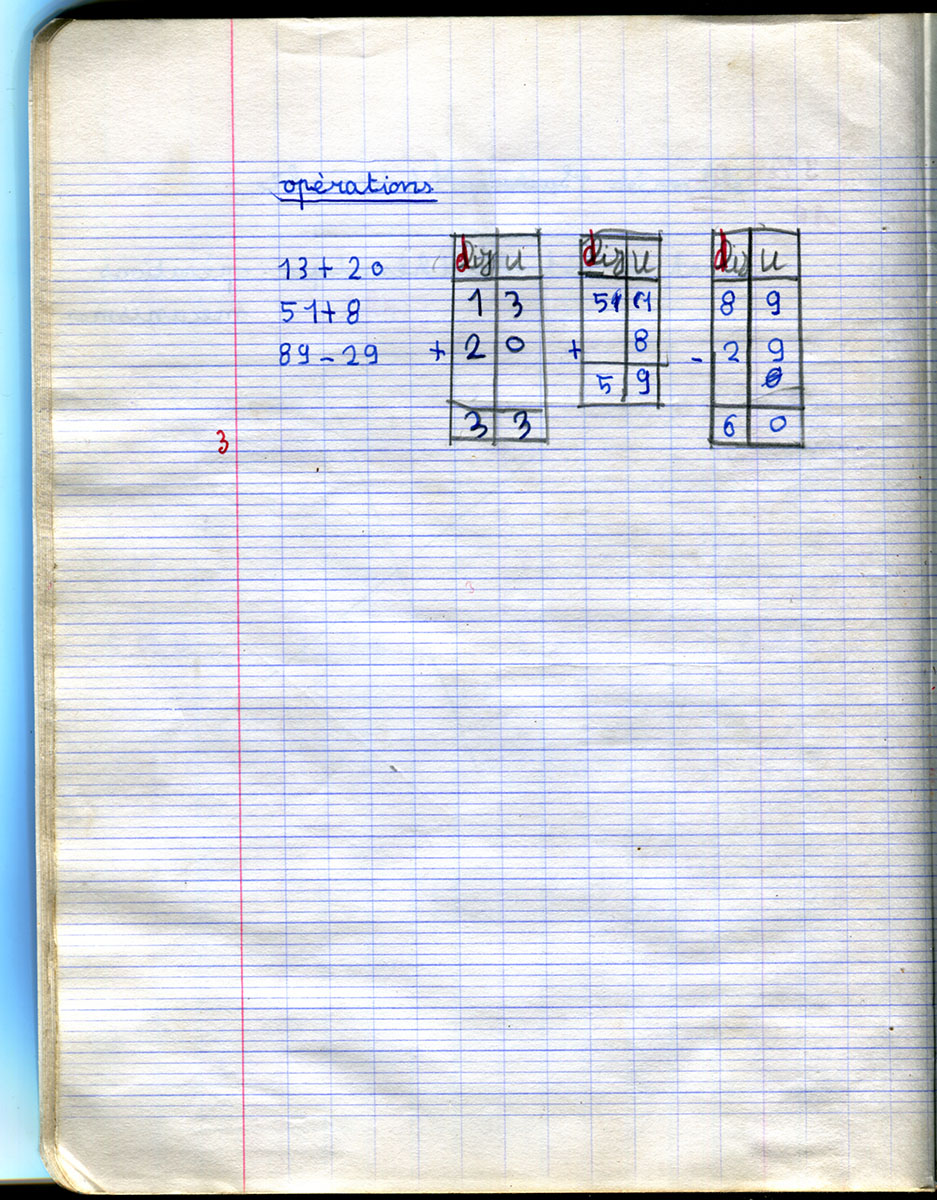 opèrations
13 + 20
51 + 8
89 - 29
diz u
1 3
+ 2 0
3 3
diz u
51 1
+ 8
5 9
diz u
8 9
- 2 9
0
6 0
3